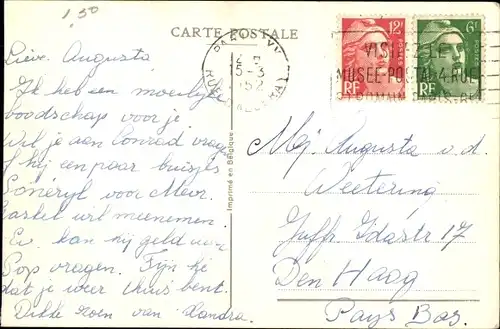 1.50
CARTE POSTALE
Lieve Augusta
Ik heb een moeilijke
boodschap voor je
Wil je aan Conrad vragen
of hij een paar buisjes
Sonéryl voor Mevr.
Castel wil meenemen.
Ev. kan hij geld aan
Pop vragen. Fijn hé
dat je weer thuis bent.
Dikke zoen van Xandra.
Imprimé en Belgique
PARIS
5-3
1952
VISITEZ LE
MUSÉE POSTAL 4 RUE
12F
6F
RF
RF
Mej Augusta v.d.
Weetering
Juffr Idastr 17
Den Haag
Pays Bas.